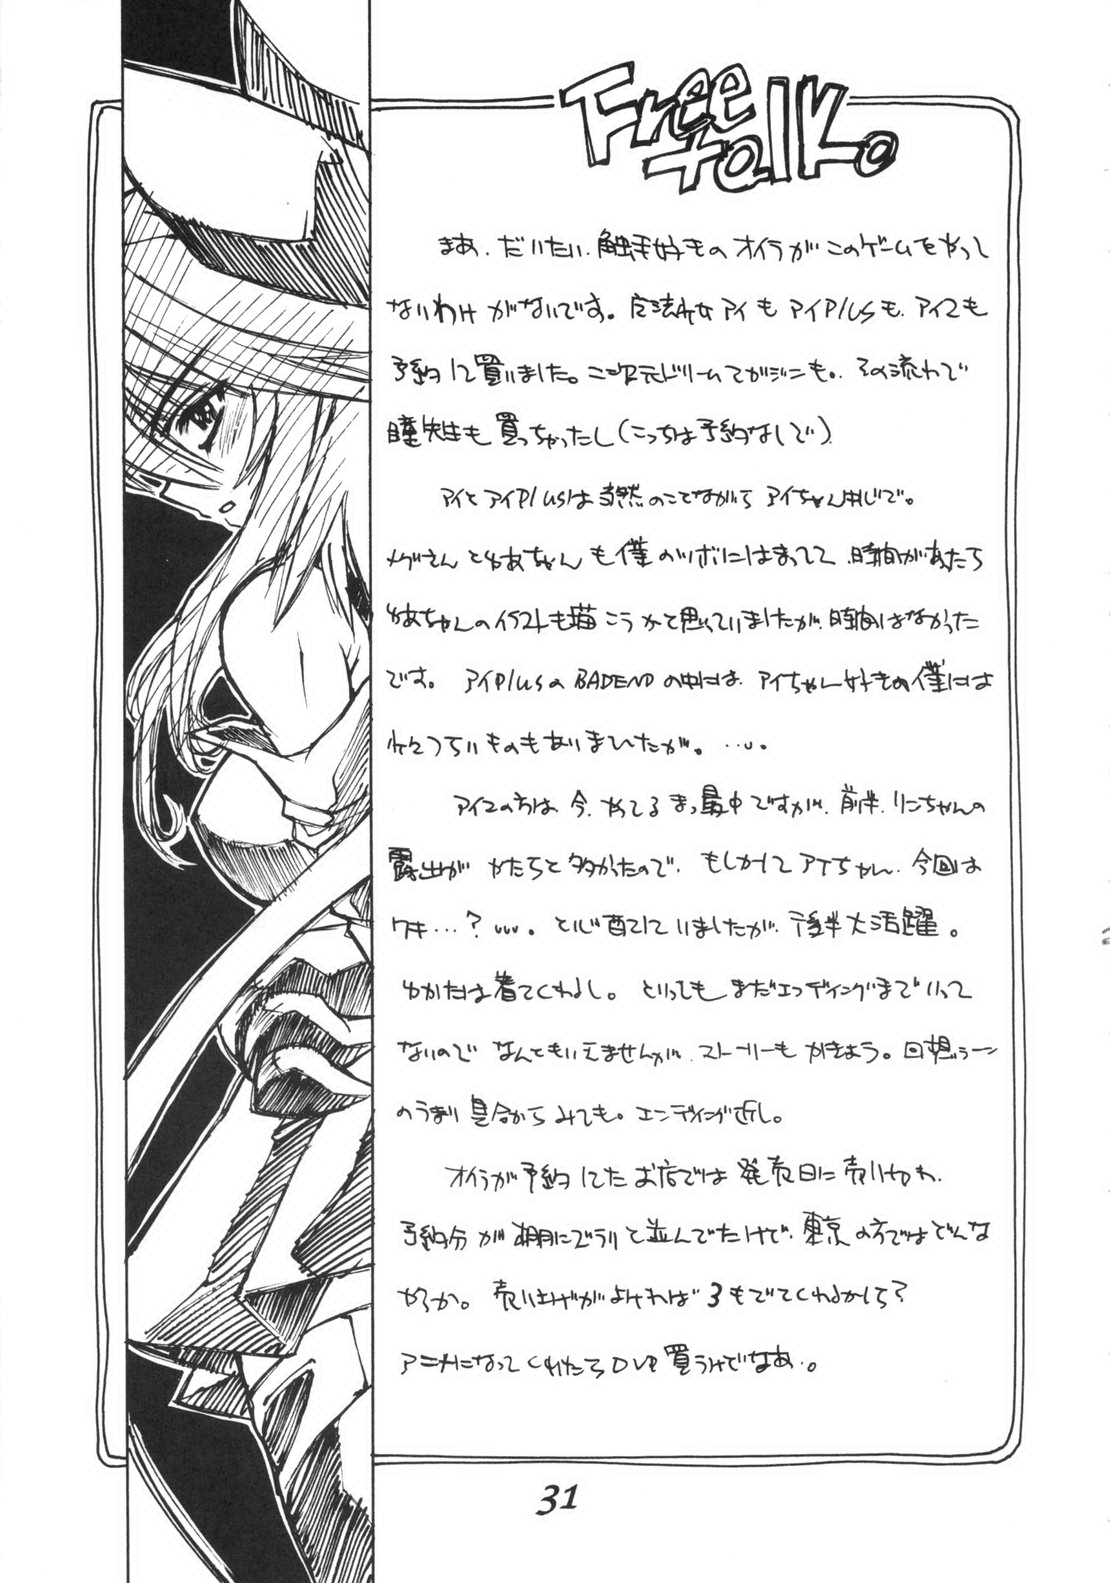 Free
talk。
まあ、だいたい、触手好きのオイラがこのゲームをやっし
ないわけがないです。魔法少女アイもアイPlusも、アイ2も
予約して買いました。二次元ドリームマガジンも。その流れで
瞳先生も買っちゃったし(こっちは予約なしで)
アイとアイPlusは当然のことながらアイちゃん中心で。
メグさんとゆあちゃんも僕のツボにはまってて、時間があったら
ゆあちゃんのイラストも描こうかと思っていましたが、時間はなかった
です。アイPlusのBADENDの中には、アイちゃん好きの僕には
つらいものもありましたが。…。
アイ2の方は、今、やってるまっ最中ですが、前半、りんちゃんの
露出がかたらと多かったので、もしかしてアイちゃん、今回は
ワキ…?…。と心配していましたが、後半大活躍。
ゆかたは着てくれるし。といってもまだエンディングまでいって
ないのでなんともいえませんが、ストーリーもかきよう。回想シーン
のうまり具合からみても。エンディング近し。
オイラが予約してたお店では発売日に売り切れ、
予約分が棚にズラリと並んでたけど、東京の方ではどんな
やろか。売り上げがよければ3もでてくれるかしら?
アニメになってくれたらDVD買うけどなあ。
31